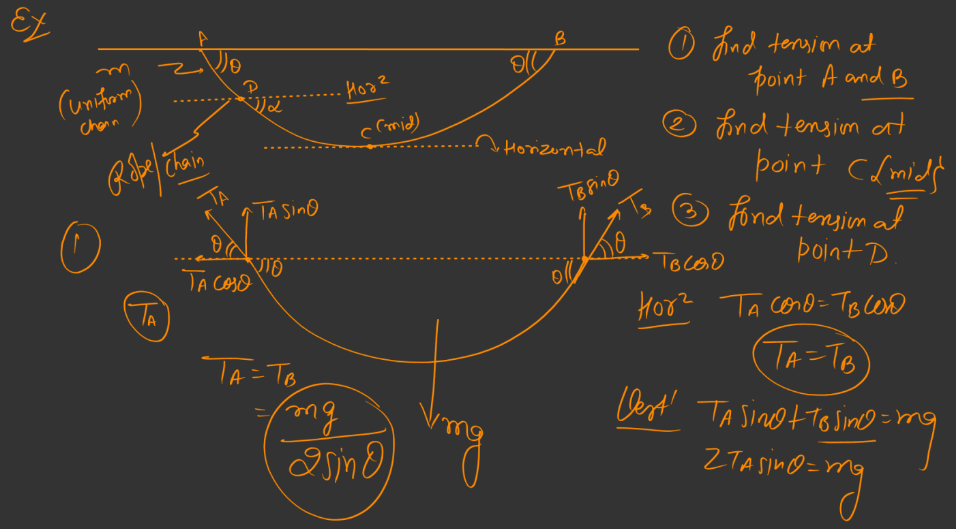 Ex
A
B
m
(uniform
chain)
θ
θ
D
α
Hor²
C (mid)
Horizontal
Rope/chain
① find tension at
point A and B
② find tension at
point C (mid)
③ find tension at
point D.
①
T_A
T_A sinθ
θ
T_A cosθ
θ
T_B sinθ
T_B
θ
T_B cosθ
θ
T_A
T_A = T_B
= mg
2 sinθ
mg
Hor² T_A cosθ = T_B cosθ
T_A = T_B
Vert' T_A sinθ + T_B sinθ = mg
2T_A sinθ = mg